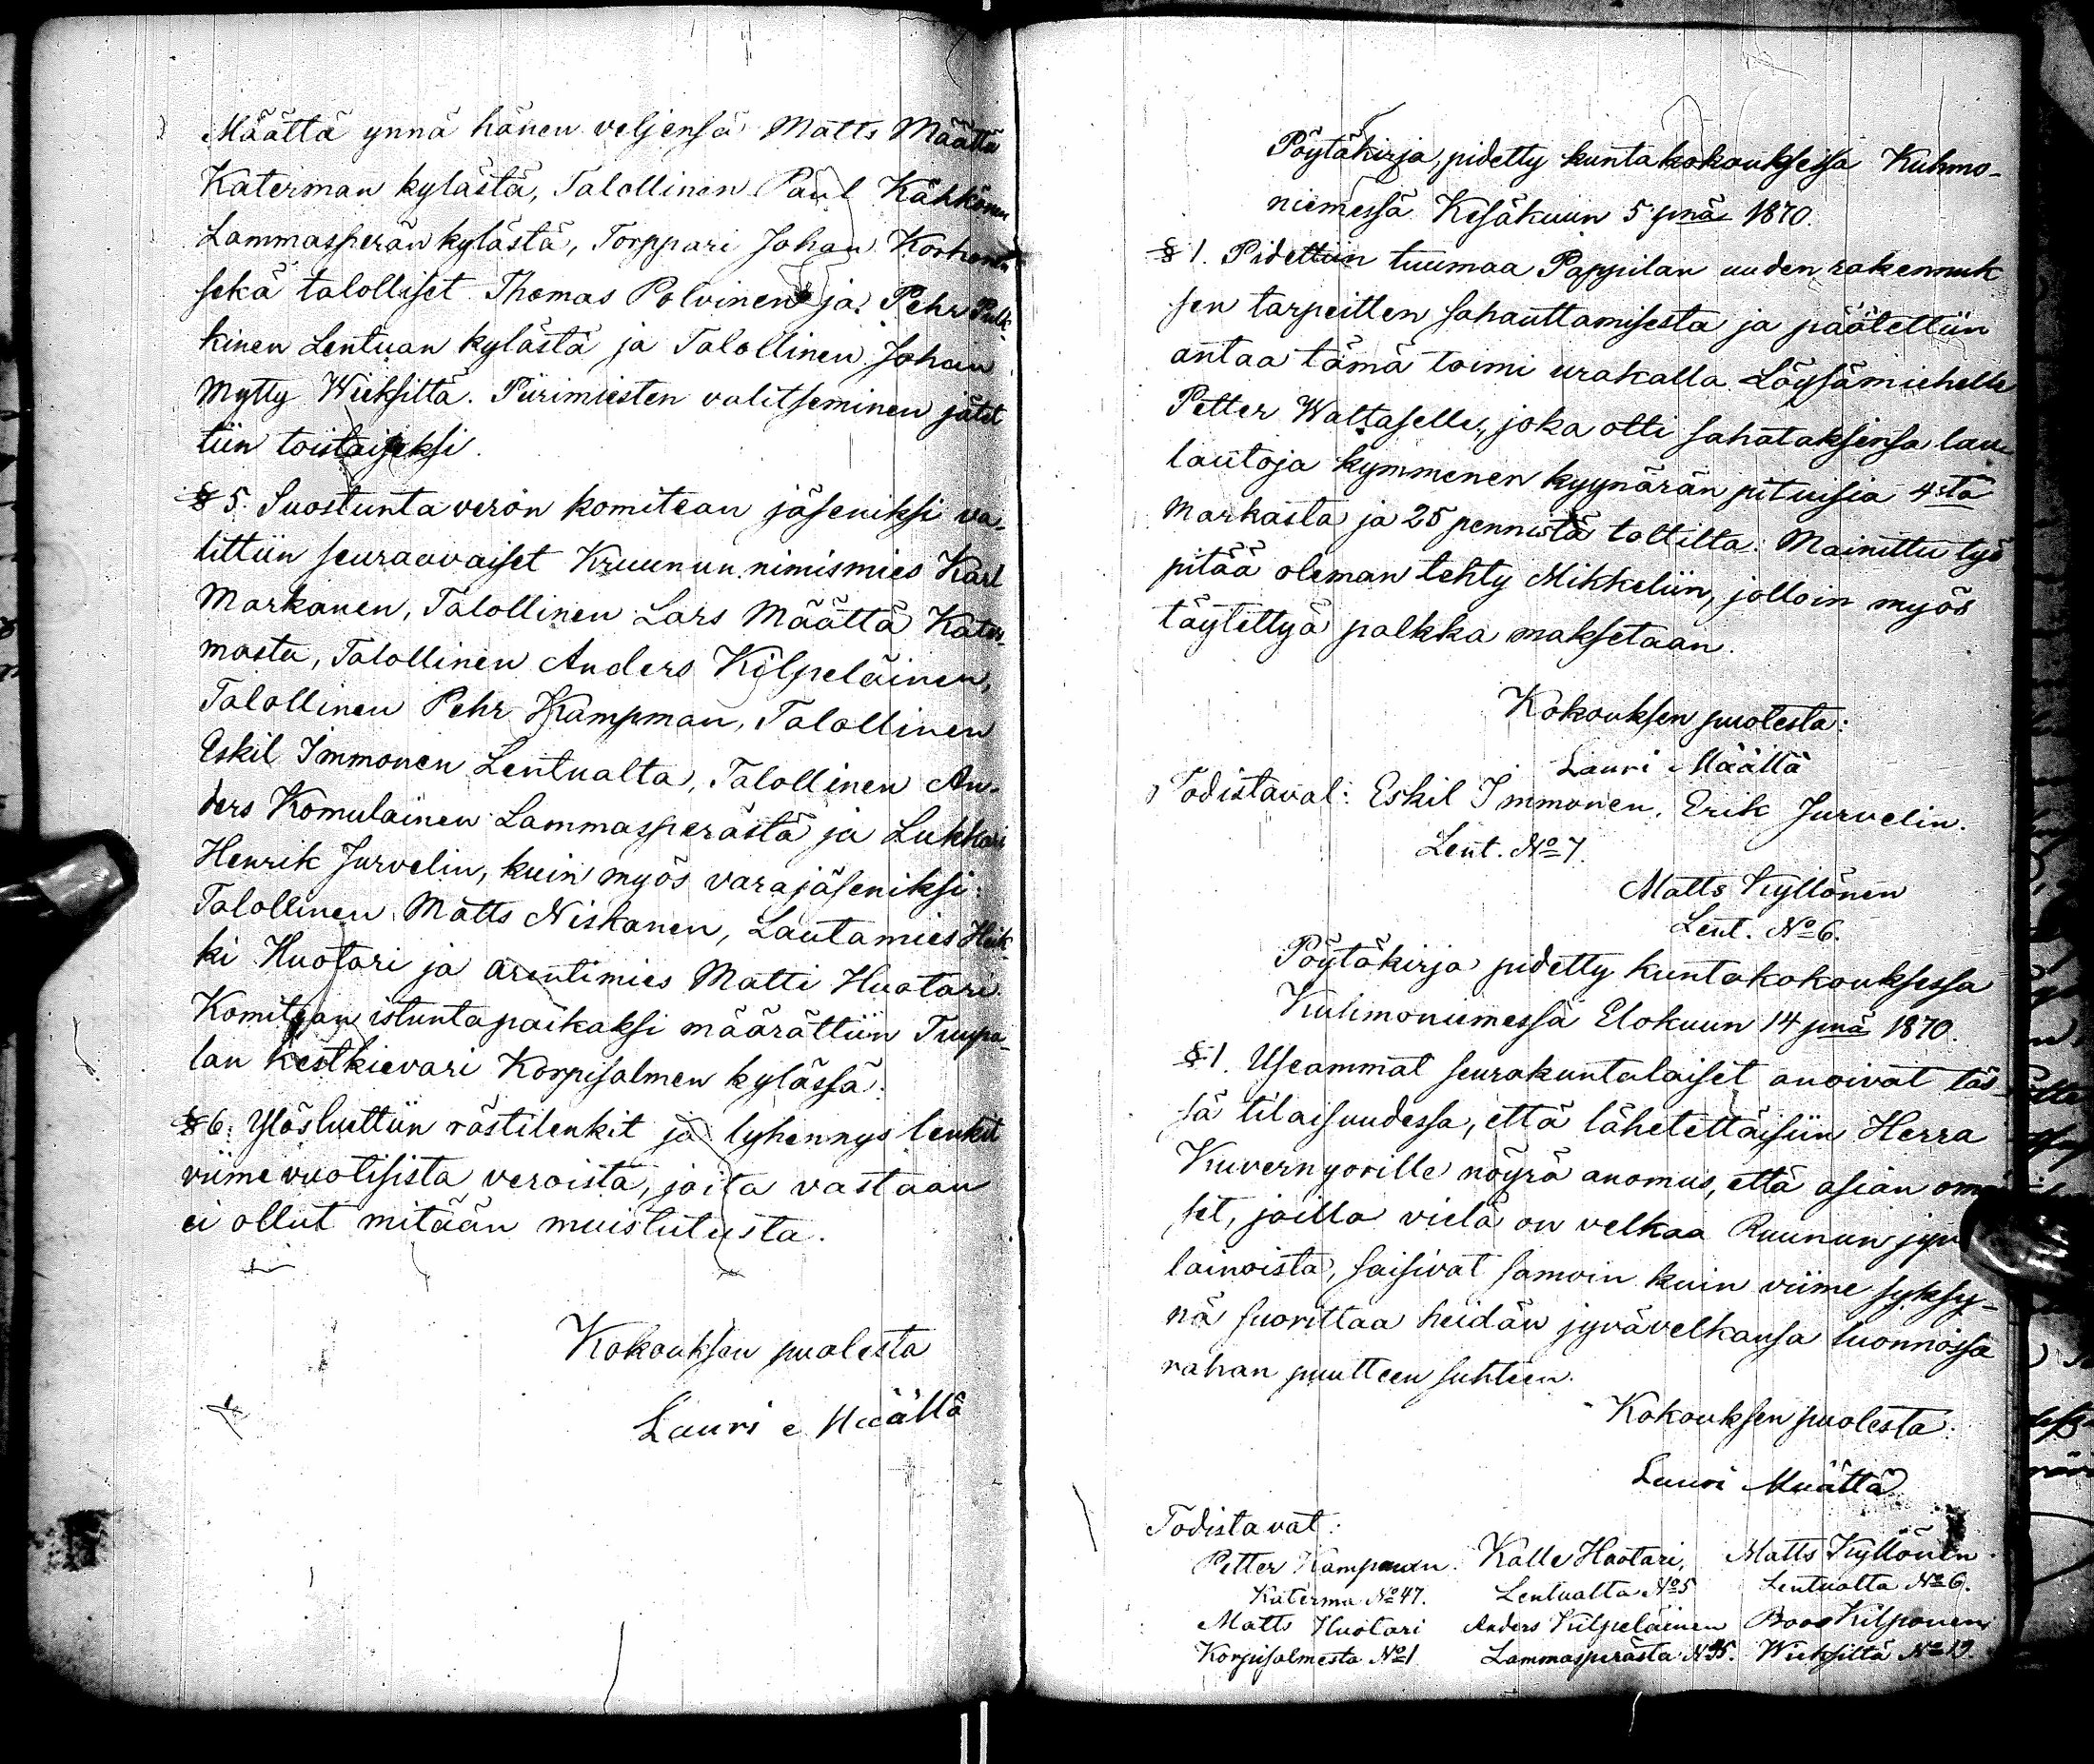 Määttä ynnä hänen veljensä Matts Määttä
Katerman kylästä, Talollinen Paul Kähkönen
Lammasperän kylästä, Torppari Johan Korhonen
sekä talolliset Thomas Polvinen ja Pehr Pulk
kinen Lentuan kylästä ja Talollinen Johan
Mytty Wieksiltä. Piirimiesten valitseminen jätet
tiin toistaiseksi.
§ 5. Suostunta veron komitean jäseniksi va-
littiin seuraavaiset Kruunun nimismies Karl
Markanen, Talollinen Lars Määttä Kater-
masta, Talollinen Anders Kilpeläinen,
Talollinen Pehr Kampman, Talollinen
Eskil Immonen Lentualta, Talollinen An-
ders Komulainen Lammasperästä ja Lukkari
Henrik Jurvelin, kuin myös varajäseniksi:
Talollinen Matts Niskanen, Lautamies Heik-
ki Huotari ja arentimies Matti Huotari.
Komitean istuntapaikaksi määrättiin Tuupa-
lan kestkievari Korpisalmen kylässä.
§ 6. Ylösluettiin rästilenkit ja lyhennys lenkit
viime vuotisista veroista, joita vastaan
ei ollut mitään muistutusta.
Kokouksen puolesta
Lauri Määttä
Pöytäkirja, pidetty kuntakokouksessa Kuhmo-
niemessä Kesäkuun 5 pnä 1870.
§ 1. Pidettiin tuumaa Pappilan uuden rakennuk
sen tarpeitten sahauttamisesta ja päätettiin
antaa tämä toimi urakalla Löysämiehelle
Petter Waltaselle, joka otti sahataksensa lau
lautoja kymmenen kyynärän pituisia 4:stä
Markasta ja 25 pennistä toltilta. Mainittu työ
pitää oleman tehty Mikkeliin, jolloin myös
täytettyä palkka maksetaan.
Kokouksen puolesta:
Lauri Määttä
Todistavat: Eskil Immonen. Erik Jurvelin.
Lent. No 7.
Matts Kyllönen
Lent. No 6.
Pöytäkirja pidetty kuntakokouksessa
Kuhmoniemessä Elokuun 14 pnä 1870.
§ 1. Useammat seurakuntalaiset anoivat täs
sä tilaisuudessa, että lähetettäisiin Herra
Kuvernyörille nöyrä anomus, että asian omai
set, joilla vielä on velkaa Ruunun jyvä
lainoista, saisivat samoin kuin viime syksy-
nä suorittaa heidän jyvävelkansa luonnossa
rahan puutteen suhteen.
Kokouksen puolesta:
Lauri Määttä
Todistavat:
Petter Kampman. Kalle Huotari, Matts Kyllönen.
Katerma No 47. Lentualta No 5 Lentualta No 6.
Matts Huotari Anders Kilpeläinen Kilponen
Korpisalmesta No 1 Lammasperästä Wieksiltä No 19.